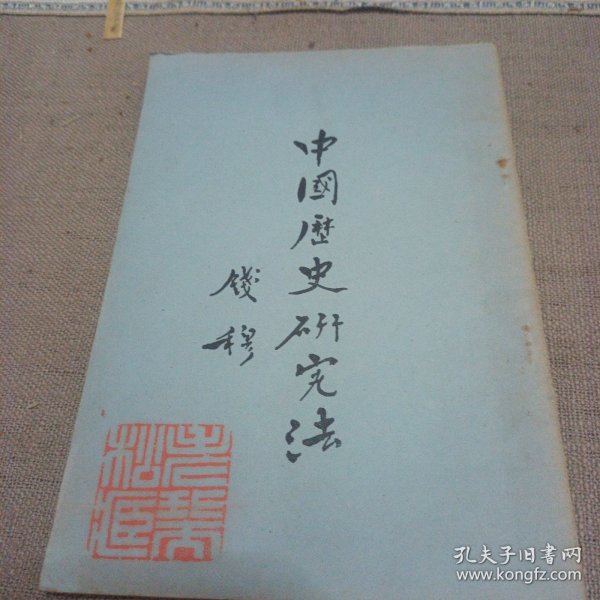 中國歷史研究法
錢穆
孔夫子旧書网
www.kongfz.com